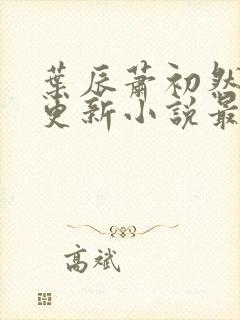 葉辰蕭初然
更新小說最
高斌